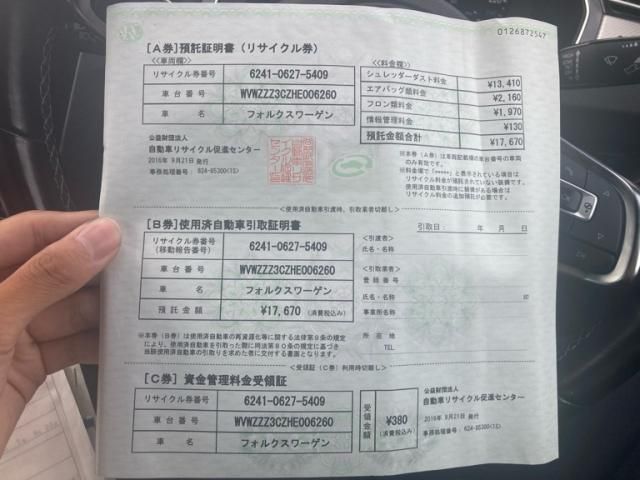 0126872547
[A券] 預託証明書（リサイクル券）
<車両欄>
リサイクル券番号 6241-0627-5409
車台番号 WVWZZZ3CZHE006260
車名 フォルクスワーゲン
<料金欄>
シュレッダーダスト料金 ¥13,410
エアバッグ類料金 ¥2,160
フロン類料金 ¥1,970
情報管理料金 ¥130
預託金額合計 ¥17,670
公益財団法人
自動車リサイクル促進センター
2016年 9月21日 発行
※本券（A券）は車両記載欄の車台番号の車両
のみ有効です。
※料金欄で「*****」と表示されている場合は
リサイクル料金が預託されていない装備です。
使用済自動車引渡時に装備がある場合は
リサイクル料金の追加預託が必要です。
<使用済自動車引渡時、引取業者切離し>
[B券] 使用済自動車引取証明書
リサイクル券番号
(移動報告番号) 6241-0627-5409
車台番号 WVWZZZ3CZHE006260
車名 フォルクスワーゲン
預託金額 ¥17,670 (消費税込み)
引取日： 年 月 日
<引渡者>
氏名・名称
<引取業者>
登録番号
氏名・名称 印
事業所名
所在地
TEL
※本券（B券）は使用済自動車の再資源化等に関する法律第9条の規定
により、使用済自動車を引取った際に同法第80条の規定に基づき
当該使用済自動車の引取りを求めた者に交付する書面となります。
<受領証（C券）利用時切離し>
[C券] 資金管理料金受領証
リサイクル券番号 6241-0627-5409
車台番号 WVWZZZ3CZHE006260
車名 フォルクスワーゲン
受領金額 ¥380 (消費税込み)
公益財団法人
自動車リサイクル促進センター
2016年 9月21日 発行